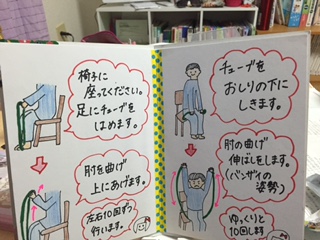 椅子に
座ってください。
足にチューブを
はめます。
肘を曲げ
上にあげます。
左右10回ずつ
行います。
チューブを
おしりの下に
しきます。
肘の曲げ
伸ばしをします。
(バンザイの
姿勢)
ゆっくりと
10回します